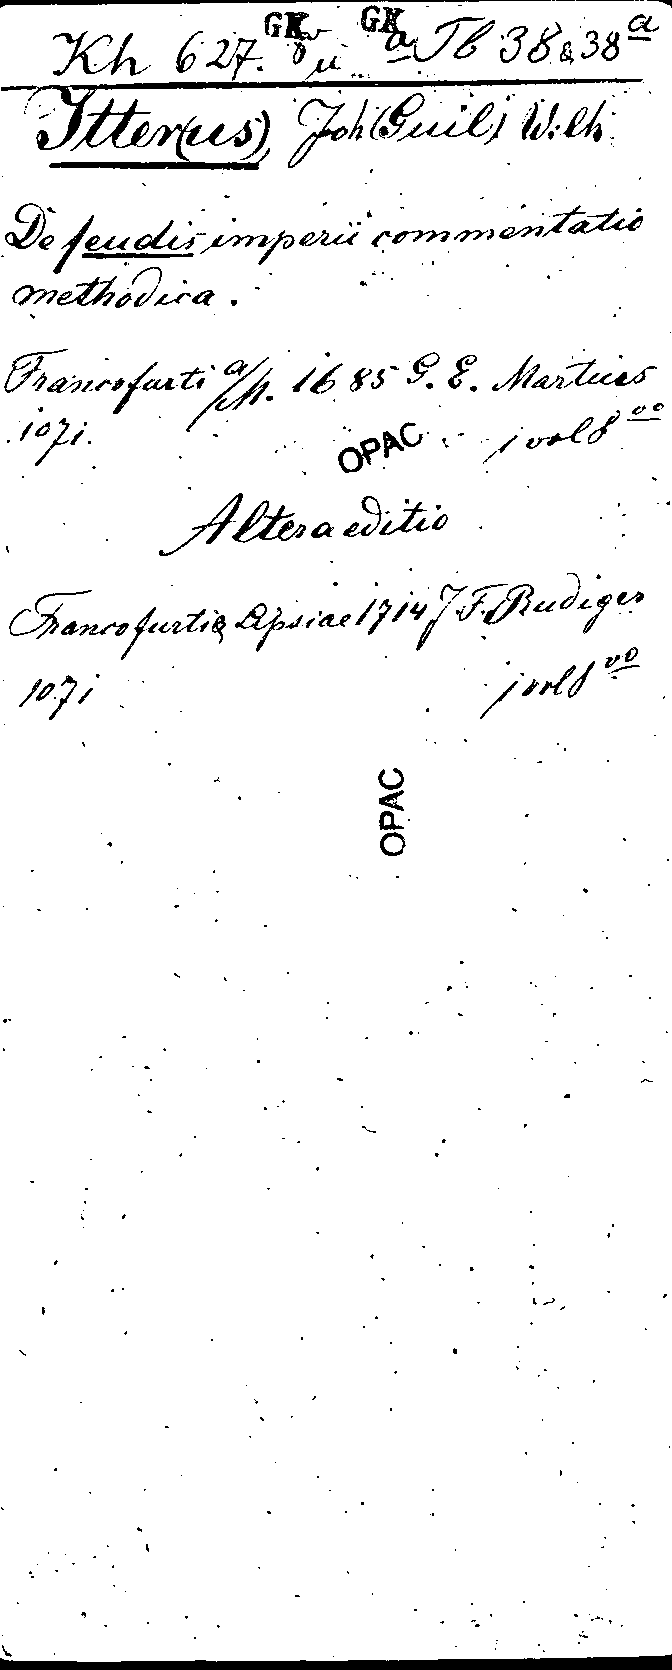 GK GK
Kh 627. 8 u a Tb 38 & 38 a
Itter(us), Joh (Guil) Wilh.
De feudis imperii commentatio
methodica.
Francofurti a/M. 1685 G. E. Martius
1071. 1 vol 8 vo
OPAC
Altera editio
Francofurti & Lipsiae 1714 J. F. Rudiger
1071 1 vol 8 vo
OPAC